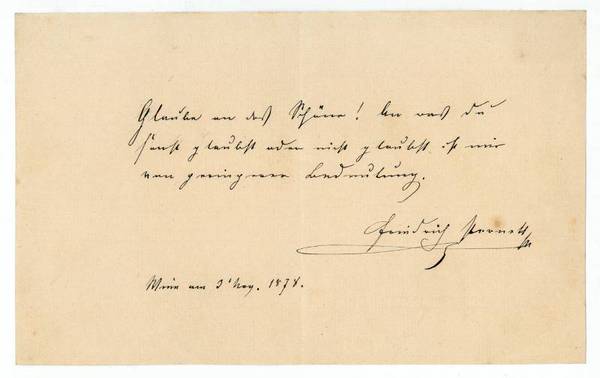 Glaube an das Schöne! An was du
sonst glaubst oder nicht glaubst, ist mir
von geringerer Bedeutung.
Friedrich
Wien am 3t Nov. 1878.